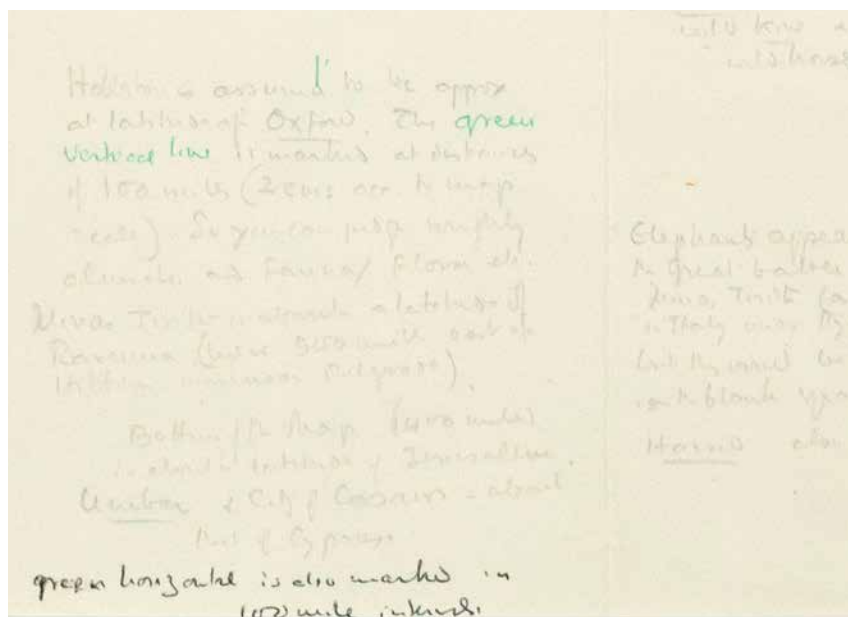 into how
Hobbiton is assumed to be approx
at latitude of Oxford. The green
vertical line is marked at distances
of 100 miles (2 cms acc. to map
scale). So you can judge roughly
climate and Fauna / Flora etc.
Minas Tirith is about latitude of
Ravenna (but is 900 miles east of
Hobbiton more near Belgrade).
Bottom of the Map (1400 miles)
is about latitude of Jerusalem.
Umbar & City of Corsairs - about
that of Cyprus
green horizontal is also marked in
100 mile intervals.
Elephants appear
the Great battle
Minas Tirith (as
in Italy under Py
but they would be
in the blank
Harad also